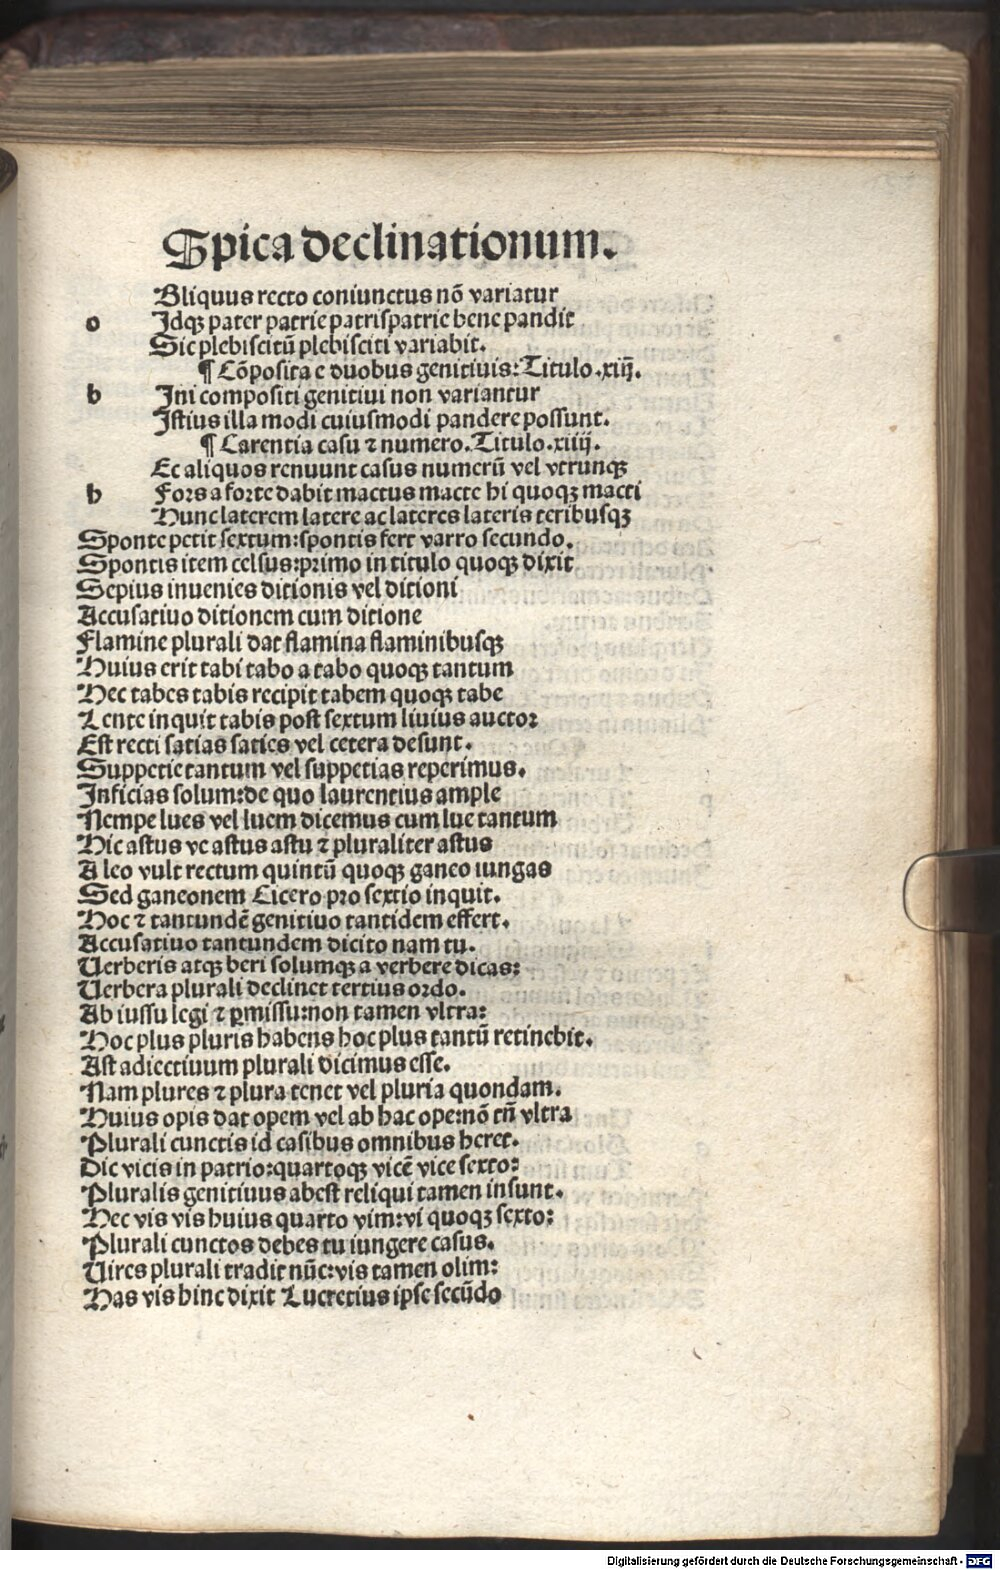 Spica declinationum.
Bliquus recto coniunctus nō variatur
o Idqꝫ pater patrie patrispatrie bene pandit
Sic plebiscitū plebisciti variabit.
¶ Cōposita e duobus genitiuis: Titulo .xiij.
b Ini compositi genitiui non variantur
Istius illa modi cuiusmodi pandere possunt.
¶ Carentia casu ⁊ numero. Titulo .xiiij.
Ec aliquos renuunt casus numerū vel vtrunqꝫ
h Fors a forte dabit mactus macte hi quoqꝫ macti
Hunc laterem latere ac lateres lateris teribusqꝫ
Sponte petit sextum: spontis fert varro secundo.
Spontis item celsus: primo in titulo quoqꝫ dixit
Sepius inuenies ditionis vel ditioni
Accusatiuo ditionem cum ditione
Flamine plurali dat flamina flaminibusqꝫ
Huius erit tabi tabo a tabo quoqꝫ tantum
Hec tabes tabis recipit tabem quoqꝫ tabe
Lente inquit tabis post sextum liuius auctor
Est recti satias saties vel cetera desunt.
Suppetie tantum vel suppetias reperimus.
Inficias solum: de quo laurentius ample
Nempe lues vel luem dicemus cum lue tantum
Hic astus vc astus astu ⁊ pluraliter astus
A leo vult rectum quintū quoqꝫ ganeo iungas
Sed ganeonem Cicero pro sextio inquit.
Hoc ⁊ tantundē genitiuo tantidem effert.
Accusatiuo tantundem dicito nam tu.
Verberis atqꝫ beri solumqꝫ a verbere dicas:
Verbera plurali declinet tertius ordo.
Ab iussu legi ⁊ ꝑmissu: non tamen vltra:
Hoc plus pluris habens hoc plus tantū retinebit.
Ast adiectiuum plurali dicimus esse.
Nam plures ⁊ plura tenet vel pluria quondam.
Huius opis dat opem vel ab hac ope: nō tn̄ vltra
Plurali cunctis id casibus omnibus heret.
Dic vicis in patrio: quartoqꝫ vicē vice sexto:
Pluralis genitiuus abest reliqui tamen insunt.
Hec vis vis huius quarto vim: vi quoqꝫ sexto:
Plurali cunctos debes tu iungere casus.
Vires plurali tradit nūc: vis tamen olim:
Has vis hinc dixit Lucretius ipse secūdo
Digitalisierung gefördert durch die Deutsche Forschungsgemeinschaft - DFG